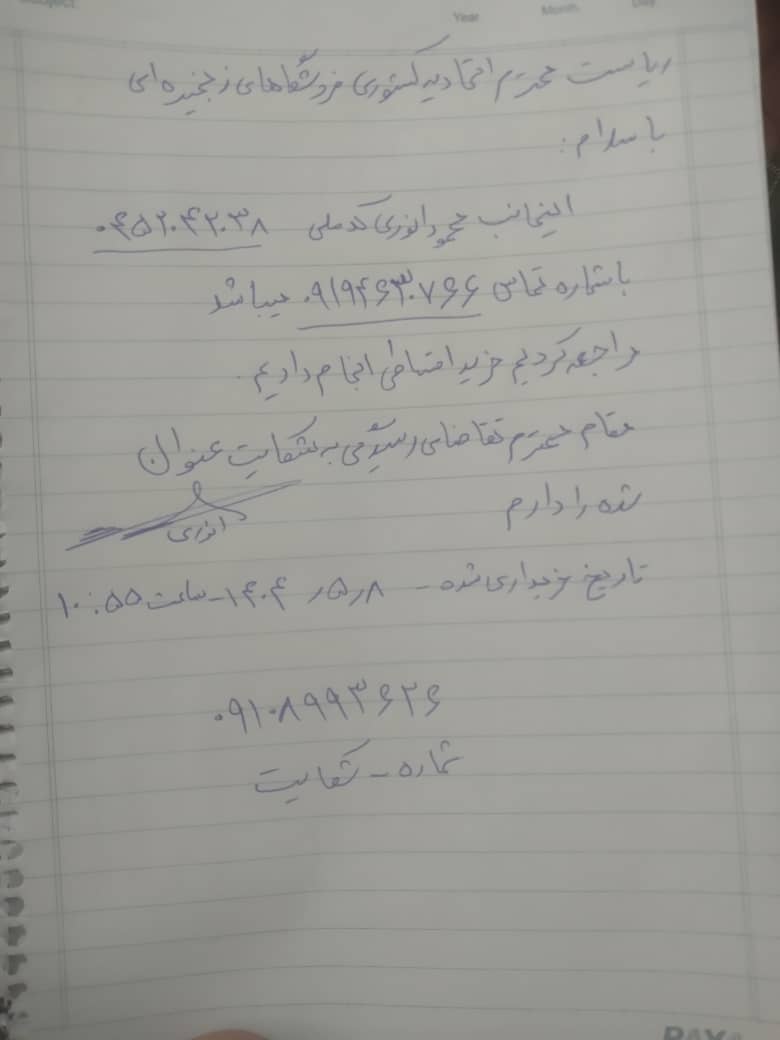 Subject
Year Month Day
ریاست محترم اتحادیه کشوری فروشگاهای زنجیره ای
با سلام :
اینجانب محمود انوری کد ملی ۰۴۵۲۰۴۲۰۳۸
با شماره تماس ۰۹۱۹۴۶۳۰۷۶۶ میباشد
مراجعه کردیم خرید اقساطی انجام دادیم.
مقام محترم تقاضای رسیدگی به شکایت عنوان
شده را دارم
انوری
تاریخ خریداری شده - ۸ر۵ر ۱۴۰۴ - ساعت ۱۰:۵۵
۰۹۱۰۸۹۹۳۶۲۶
شماره - شکایت